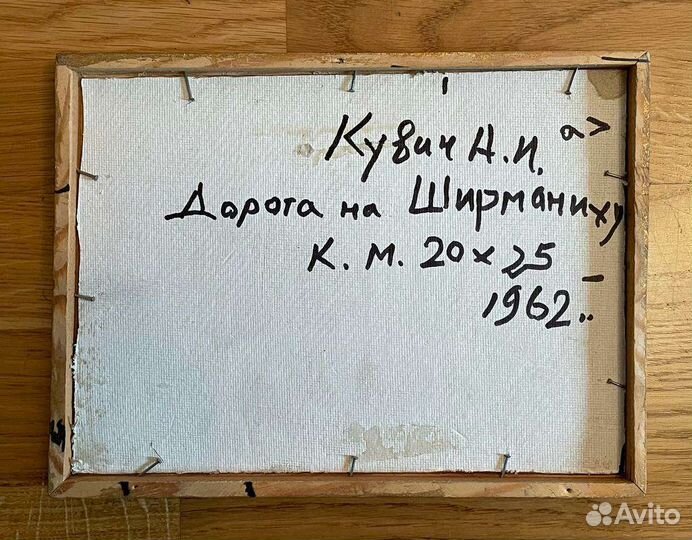 Кувич А.И.
Дорога на Ширманиху
К. М. 20 × 25
1962
Avito